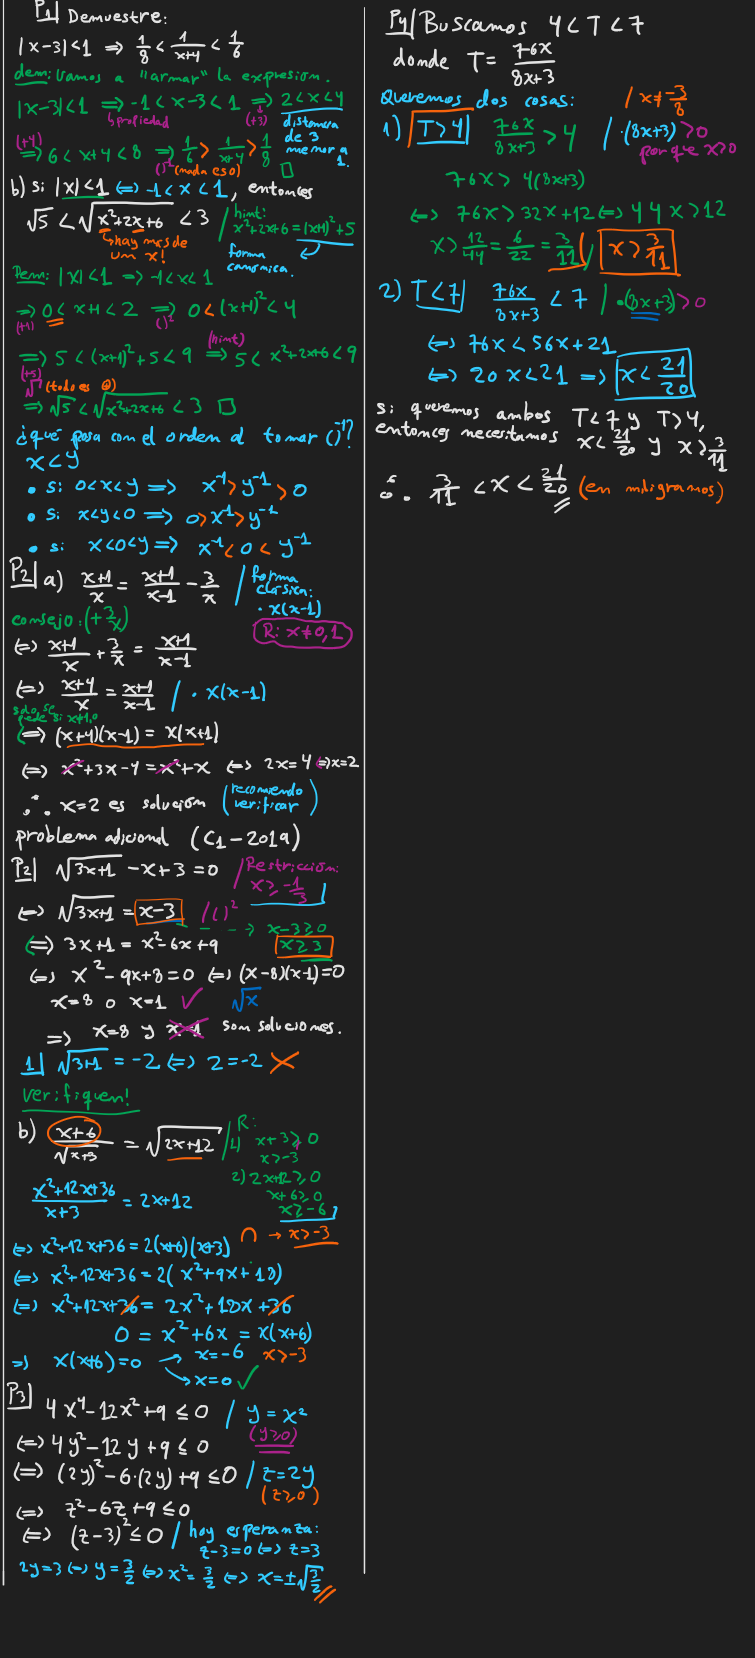 P1| Demuestre:
|x-3|<1 ⇒ 1/8 < 1/(x+4) < 1/6
dem: Vamos a "armar" la expresión.
|x-3|<1 ⇒ -1<x-3<1 ⇒ 2<x<4
↳ propiedad (+3) distancia de 3 menor a 1.
(+4) ⇒ 6<x+4<8 ⇒ 1/6 > 1/(x+4) > 1/8 □
()⁻¹ (nada es 0)
b) si |x|<1 ⇔ -1<x<1, entonces
√5 < √(x²+2x+6) < 3 / hint: x²+2x+6=(x+1)²+5
↳ hay más de un x! forma canónica.
Dem: |x|<1 ⇒ -1<x<1
⇒ 0<x+1<2 ⇒ 0<(x+1)²<4
(+1) ()²
⇒ 5<(x+1)²+5<9 ⇒ 5<x²+2x+6<9
(+5) (hint)
√ (todo es ⊕)
⇒ √5<√(x²+2x+6)<3 □
¿qué pasa con el orden al tomar ()⁻¹?
x<y
• si 0<x<y ⇒ x⁻¹>y⁻¹>0
• si x<y<0 ⇒ 0>x⁻¹>y⁻¹
• si x<0<y ⇒ x⁻¹<0<y⁻¹
P2| a) (x+1)/x = (x+1)/(x-1) - 3/x / forma clásica: · x(x-1)
consejo: (+3/x) R: x≠0,1
⇔ (x+1)/x + 3/x = (x+1)/(x-1)
⇔ (x+4)/x = (x+1)/(x-1) / · x(x-1)
solo se puede si x≠1,0
⇔ (x+4)(x-1) = x(x+1)
⇔ x²+3x-4=x²+x ⇔ 2x=4 ⇔ x=2
∴ x=2 es solución (recomiendo verificar)
problema adicional (C1-2019)
P2| √(3x+1) -x+3=0 / Restricción: x≥-1/3
⇔ √(3x+1) = x-3 /()²
→ x-3≥0
⇔ 3x+1 = x²-6x+9 x≥3
⇔ x²-9x+8=0 ⇔ (x-8)(x-1)=0
x=8 o x=1 ✓ √x
⇒ x=8 y x=1 son soluciones.
1| √(3+1) = -2 ⇔ 2=-2 ✗
verifiquen!
b) (x+6)/√(x+3) = √(2x+12) / R:
1) x+3≥0
x>-3
2) 2x+12≥0
x+6≥0
x≥-6
(x²+12x+36)/(x+3) = 2x+12
∩ → x>-3
⇔ x²+12x+36=2(x+6)(x+3)
⇔ x²+12x+36=2(x²+9x+18)
⇔ x²+12x+36= 2x²+18x+36
0 = x²+6x = x(x+6)
⇒ x(x+6)=0 → x=-6 x>-3
↘ x=0 ✓
P3| 4x⁴-12x²+9≤0 / y=x²
(y≥0)
⇔ 4y²-12y+9≤0
⇔ (2y)²-6·(2y)+9≤0 / z=2y
(z≥0)
⇔ z²-6z+9≤0
⇔ (z-3)²≤0 / hay esperanza:
z-3=0 ⇔ z=3
2y=3 ⇔ y=3/2 ⇔ x²=3/2 ⇔ x=±√(3/2)
P4| Buscamos 4<T<7
donde T= 76x/(8x+3)
Queremos dos cosas: / x≠-3/8
1) T>4| 76x/(8x+3) > 4 / ·(8x+3)>0
porque x>0
76x > 4(8x+3)
⇔ 76x>32x+12 ⇔ 44x>12
x>12/44=6/22=3/11 / x>3/11
2) T<7| 76x/(8x+3) < 7 / ·(8x+3)>0
⇔ 76x<56x+21
⇔ 20x<21 ⇒ x<21/20
si queremos ambos T<7 y T>4,
entonces necesitamos x<21/20 y x>3/11
∴ 3/11 <x< 21/20 (en miligramos)